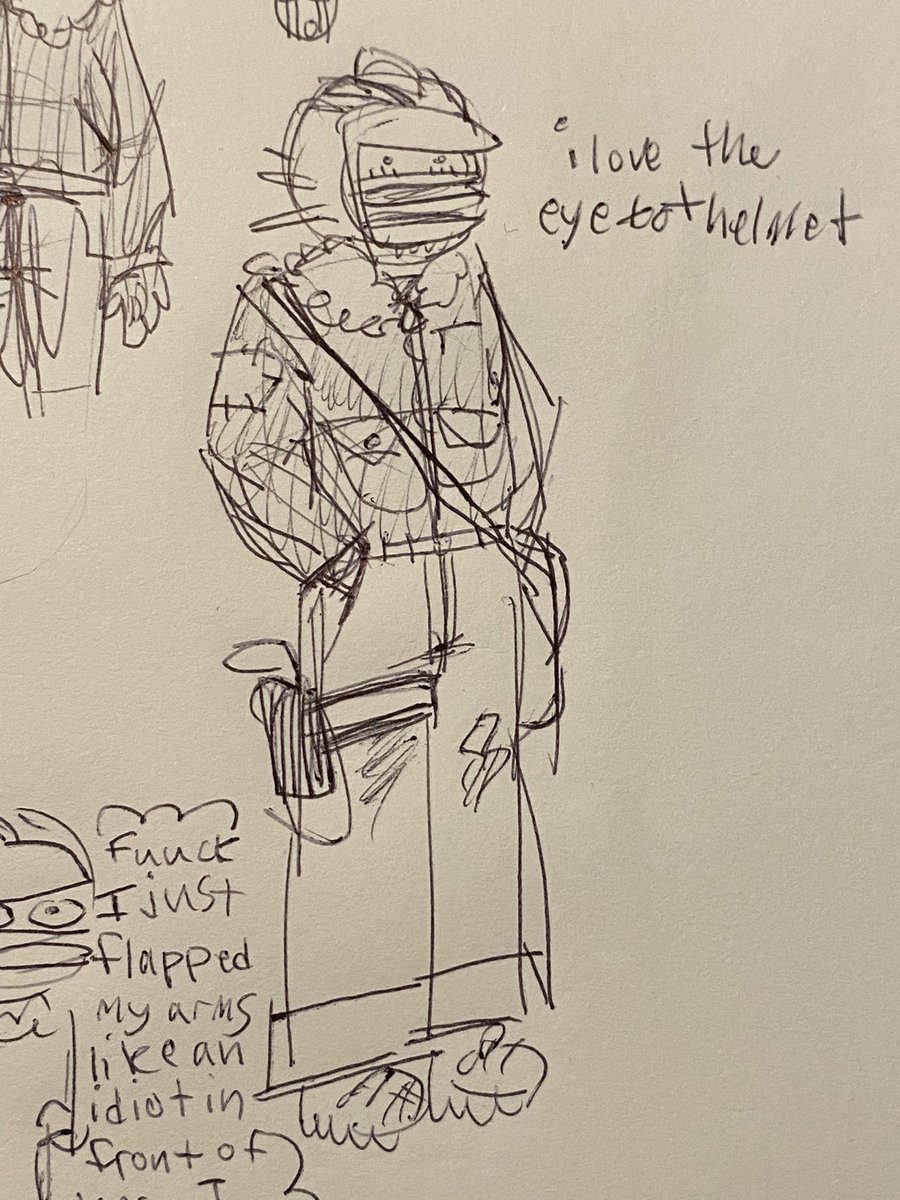 i love the
eyebot helmet
Fuuck
I just
flapped
my arms
like an
idiot in
front of
I